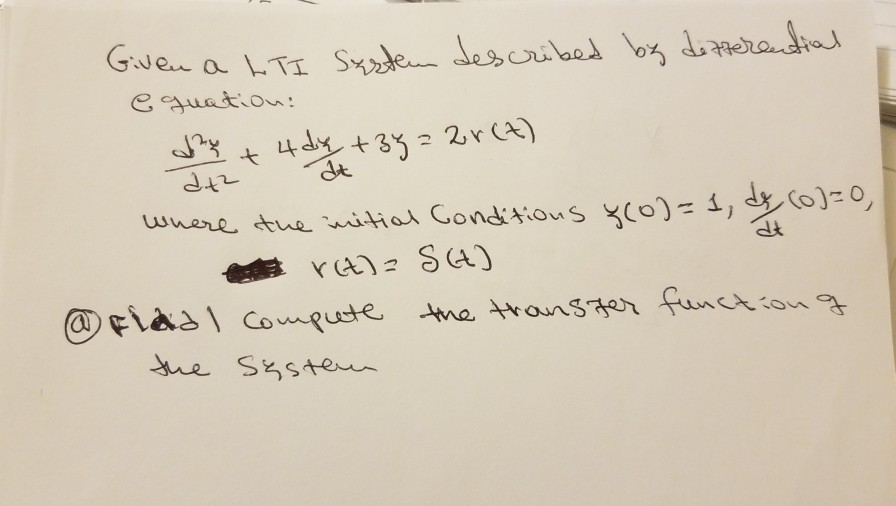 Given a LTI System described by differential
equation:
d²y/dt² + 4dy/dt + 3y = 2r(t)
where the initial Conditions y(0) = 1, dy/dt (0) = 0,
r(t) = δ(t)
(a) Find / compute the transfer function of
the System